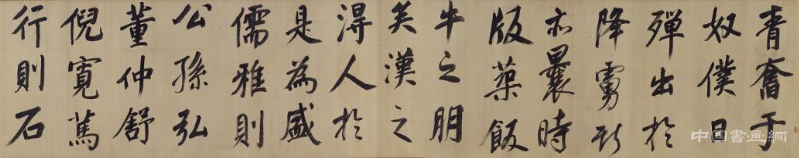 青奮于
奴僕日
磾出於
降虜斯
亦曩時
版築飯
牛之朋
矣漢之
得人於
是為盛
儒雅則
公孫弘
董仲舒
倪寬篤
行則石
中国書画網